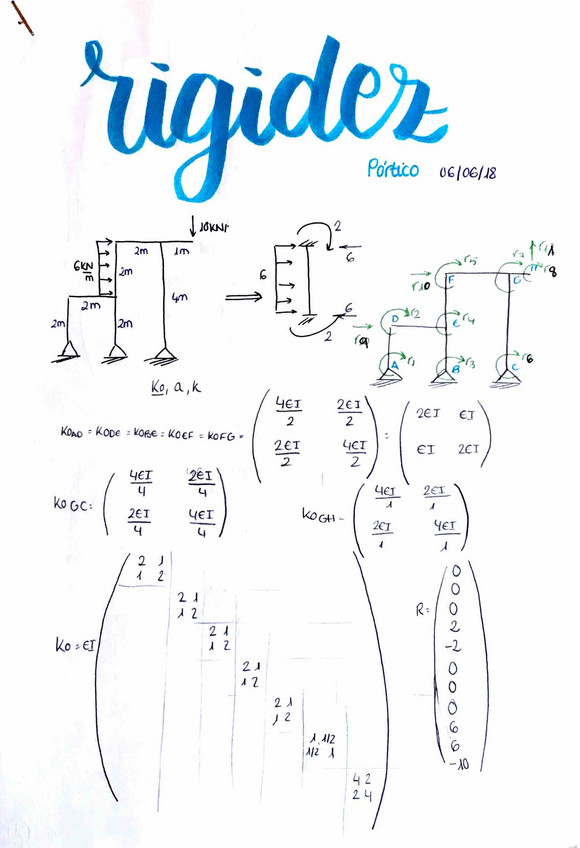 rigidez
Pórtico 06/06/18
10KN
6KN/m
2m 1m
2m
4m
2m
2m 2m
2
6
6
6
2
r11
r5 r7
r10 F G H r8
r2
D r4
E
r9
r1 r3 r6
A B C
K0, a, k
K0AD = K0DE = K0BE = K0EF = K0FG = ( 4EI/2 2EI/2 ; 2EI/2 4EI/2 ) = ( 2EI EI ; EI 2EI )
K0GC = ( 4EI/4 2EI/4 ; 2EI/4 4EI/4 )
K0GH = ( 4EI/1 2EI/1 ; 2EI/1 4EI/1 )
K0 = EI
2 1
1 2
2 1
1 2
2 1
1 2
2 1
1 2
2 1
1 2
1 1/2
1/2 1
4 2
2 4
R =
0
0
0
2
-2
0
0
0
6
6
-10